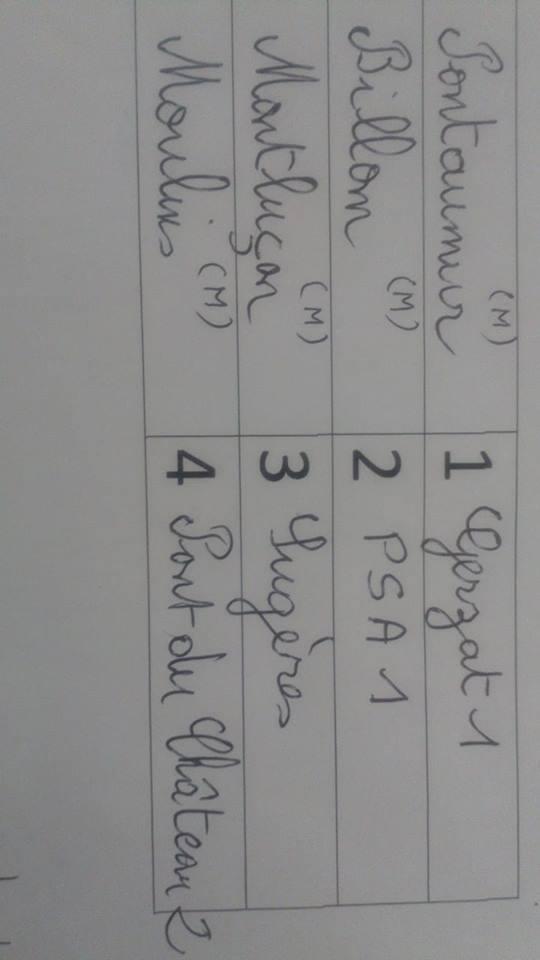 Pontaumur (M) 1 Gerzat 1
Billom (M) 2 PSA 1
Montluçon (M) 3 Sugères
Moulins (M) 4 Pont du Château 2